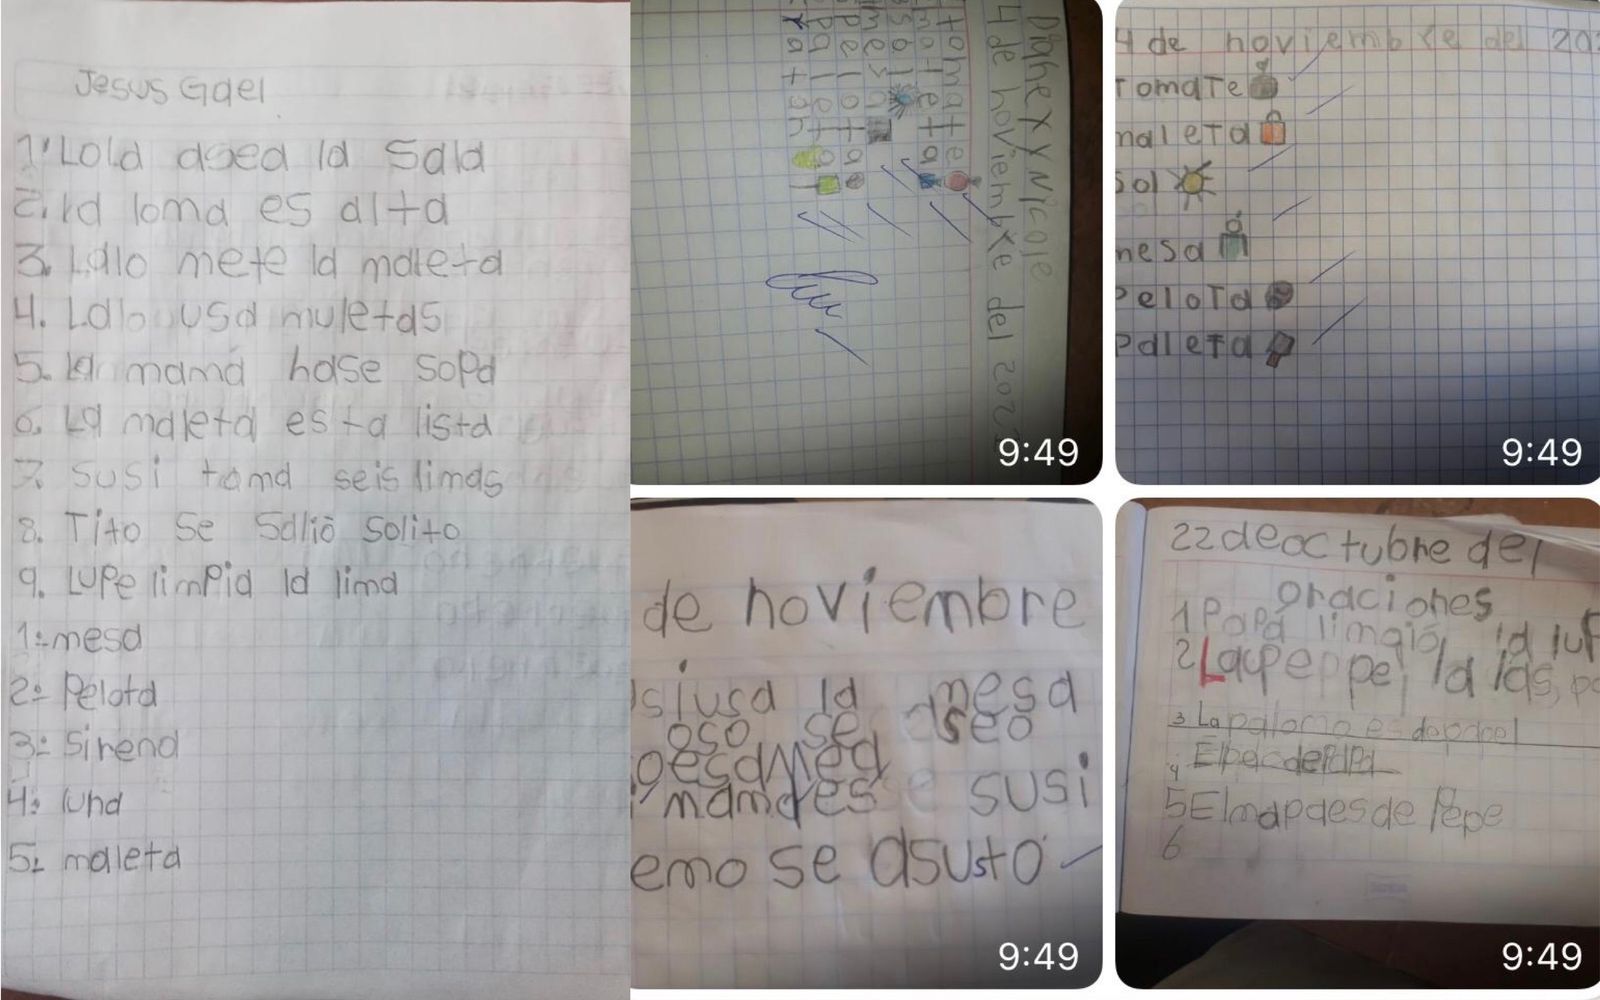 Jesus Gael
1. Lola asea la sala
2. la loma es alta
3. Lalo mete la maleta
4. Lalo usa muletas
5. la mamá hase sopa
6. La maleta esta lista
7. Susi toma seis limas
8. Tito se salió solito
9. Lupe limpia la lima
1: mesa
2: Pelota
3: Sirena
4: luna
5: maleta
Nicole
4 de noviembre del 202
tomate
maleta
sol
mesa
pelota
paleta
raton
9:49
4 de noviembre del 202
Tomate
maleta
sol
mesa
Pelota
Paleta
9:49
de noviembre
la mesa
oso se aseo
susi
emo se asusto
9:49
22 de octubre del
oraciones
1 Papá la
2 la
3 La paloma es de papel
4 El de
5 El mapa es de Pepe
6
9:49